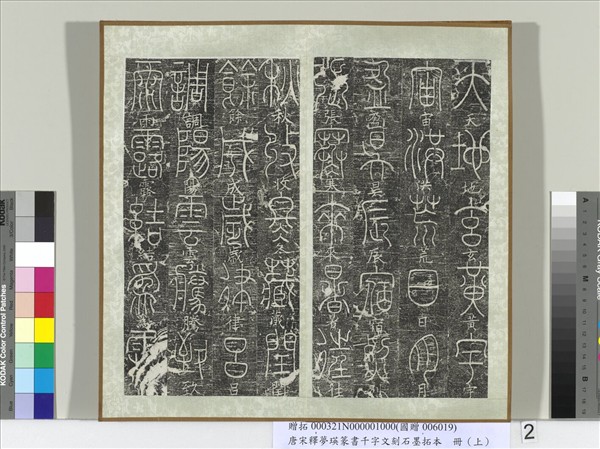 天地玄黃宇
宙洪荒日月
盈昃辰宿列
張寒來暑往
秋收冬藏閏
餘成歲律呂
調陽雲騰致
雨露結為霜
贈拓 000321N000001000(國贈 006019)
唐宋釋夢瑛篆書千字文刻石墨拓本 冊（上）
2
KODAK Color Control Patches